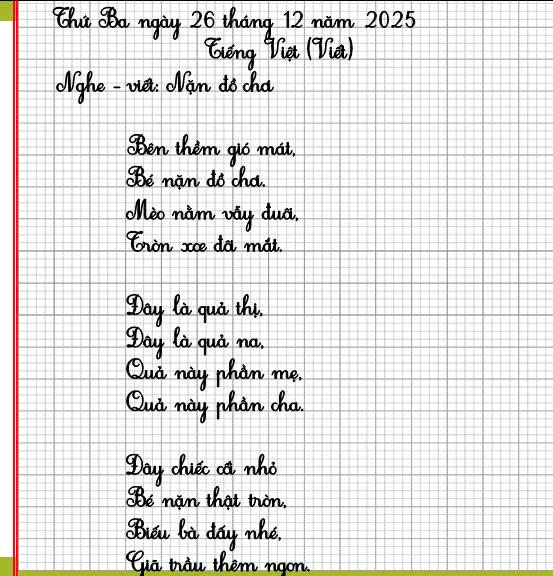 Thứ Ba ngày 26 tháng 12 năm 2025
Tiếng Việt (Viết)
Nghe - viết: Nặn đồ chơi
Bên thềm gió mát,
Bé nặn đồ chơi.
Mèo nằm vẫy đuôi,
Tròn xoe đôi mắt.
Đây là quả thị,
Đây là quả na,
Quả này phần mẹ,
Quả này phần cha.
Đây chiếc cối nhỏ
Bé nặn thật tròn,
Biếu bà đấy nhé,
Giã trầu thêm ngon.